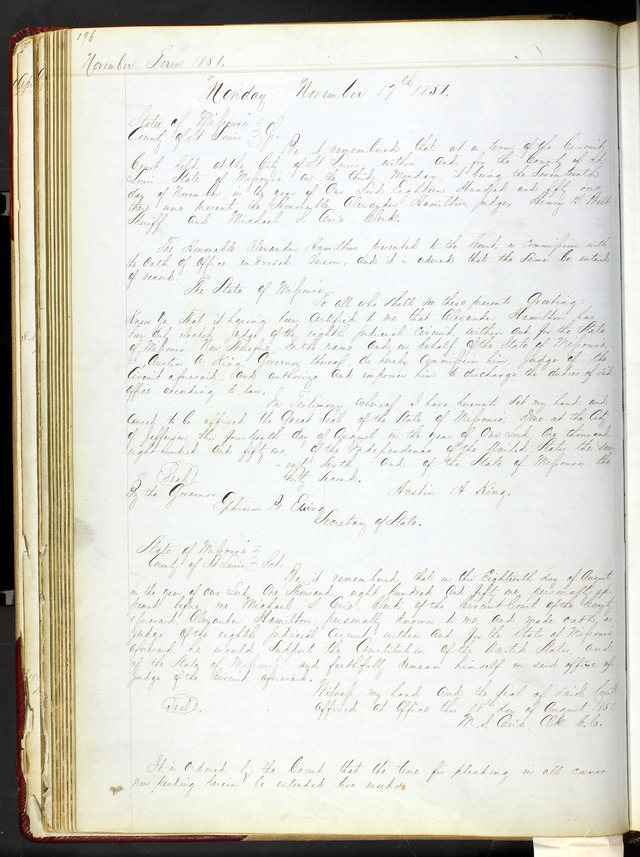 196
November Term 1851.
Monday November 17th 1851.
State of Missouri
County of St Louis
Be it remembered that at a term of the Circuit
Court held at the City of St Louis, within and for the County of St
Louis State of Missouri on the third Monday it being the Seventeenth
day of November in the year of Our Lord Eighteen Hundred and fifty one
there were present the Honorable Alexander Hamilton judge, Henry B. Belt
Sheriff and Michael S. Cerré Clerk.
The Honorable Alexander Hamilton presented to the Court, a Commission with
the Oath of Office endorsed thereon, and it is ordered that the same be entered
of record.
The State of Missouri
To all who shall see these presents, Greeting:
Know Ye that it having been Certified to me that Alexander Hamilton has
been duly elected judge of the eighth judicial circuit within and for the State
of Missouri. Now Therefore in the name and on behalf of the State of Missouri,
I, Austin A. King, Governor thereof, do hereby Commission him, judge of the
Circuit aforesaid, and authorize and empower him to discharge the duties of said
office according to law.
In Testimony whereof, I have hereunto set my hand, and
caused to be affixed the Great Seal of the State of Missouri. Done at the City
of Jefferson this fourteenth day of August in the year of Our Lord One thousand
eight hundred and fifty one, of the Independence of the United States the sev-
-enty sixth and of the State of Missouri the
(Seal) thirty second.
By the Governor Austin A King.
Ephraim B. Ewing
Secretary of State.
State of Missouri
County of St Louis Sct.
Be it remembered that on this Eighteenth day of August
in the year of our Lord, One thousand, eight hundred and fifty one, personally ap-
peared before me Michael S. Cerré Clerk of the Circuit Court of the County
aforesaid Alexander Hamilton, personally known to me, and made oath, as
Judge of the eighth judicial Circuit within and for the State of Missouri
aforesaid he would support the Constitution of the United States and
of the State of Missouri and faithfully demean himself in said office of
Judge of the Circuit aforesaid.
Witness my hand and the Seal of said Court
(Seal). affixed at Office this 18th day of August 1851.
M. S. Cerré, Clk. C. C.
It is Ordered by the Court that the time for pleading in all cases
now pending herein be extended two weeks.